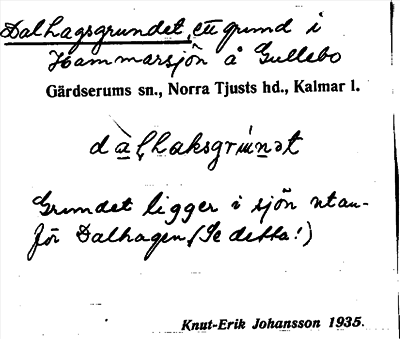 Dalhagsgrundet, ett grund i
Hammarsjön å Gullebo
Gärdserums sn., Norra Tjusts hd., Kalmar l.
dàl̥haksgrún̠ət
Grundet ligger i sjön utan-
för Dalhagen. (Se detta!)
Knut-Erik Johansson 1935.